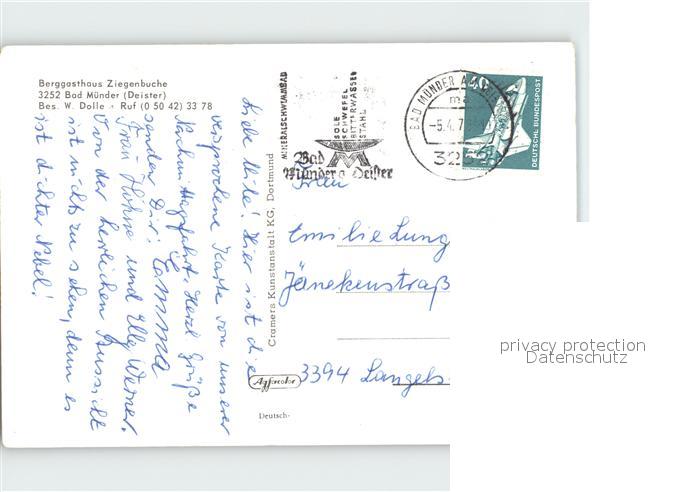 Berggasthaus Ziegenbuche
3252 Bad Münder (Deister)
Bes. W. Dolle · Ruf (0 50 42) 33 78
Liebe Mile! Hier ist die
versprochene Karte von unserer
Nachm. Herzl. Grüße
senden Dir: Emma
Frau Höhne und Elly Werner.
Von der herrlichen Aussicht
ist nichts zu sehen, denn es
ist dichter Nebel!
Cramers Kunstanstalt KG, Dortmund
MINERALSCHWIMMBAD
SOLE
SCHWEFEL
BITTERWASSER
STAHL
Bad
Münder a. Deister
BAD MÜNDER A
-5.4.7
3252
40
DEUTSCHE BUNDESPOST
Frau
Emilie Lung
Jänekenstraß
3394 Langels
Agfacolor
Deutsch-
privacy protection
Datenschutz